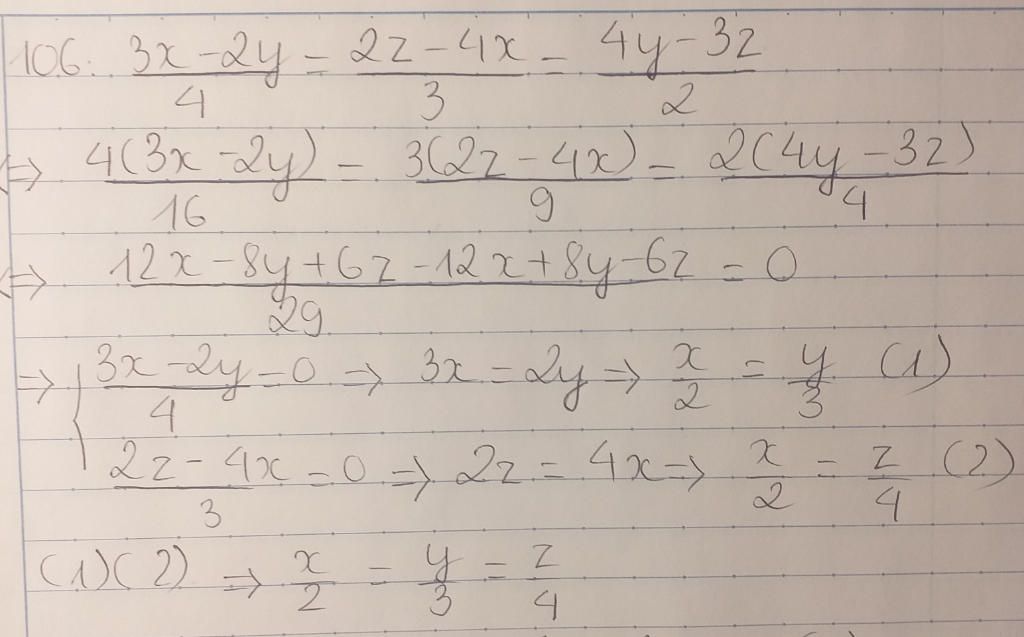 106. (3x-2y)/4 = (2z-4x)/3 = (4y-3z)/2
⇔ 4(3x-2y)/16 = 3(2z-4x)/9 = 2(4y-3z)/4
⇔ (12x-8y+6z-12x+8y-6z)/29 = 0
⇒ { (3x-2y)/4 = 0 ⇒ 3x = 2y ⇒ x/2 = y/3 (1)
(2z-4x)/3 = 0 ⇒ 2z = 4x ⇒ x/2 = z/4 (2)
(1)(2) ⇒ x/2 = y/3 = z/4